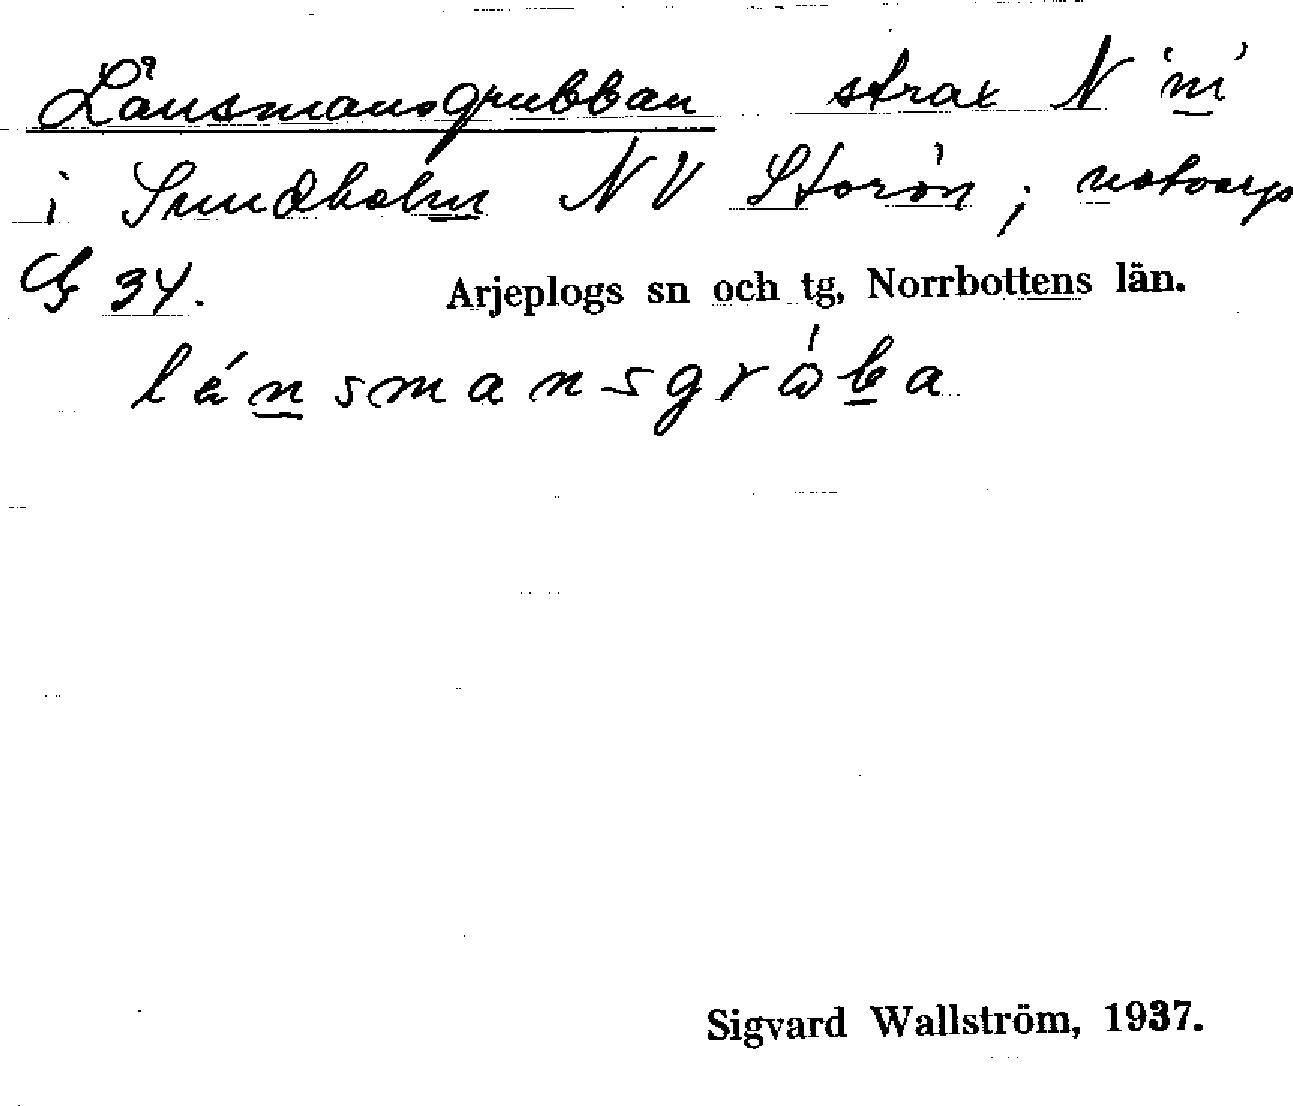 Länsmansgrubban strax N 'm'
i Sundholm NV Storön; notvarp
G 34. Arjeplogs sn och tg, Norrbottens län.
lénsmansgròba
Sigvard Wallström, 1937.